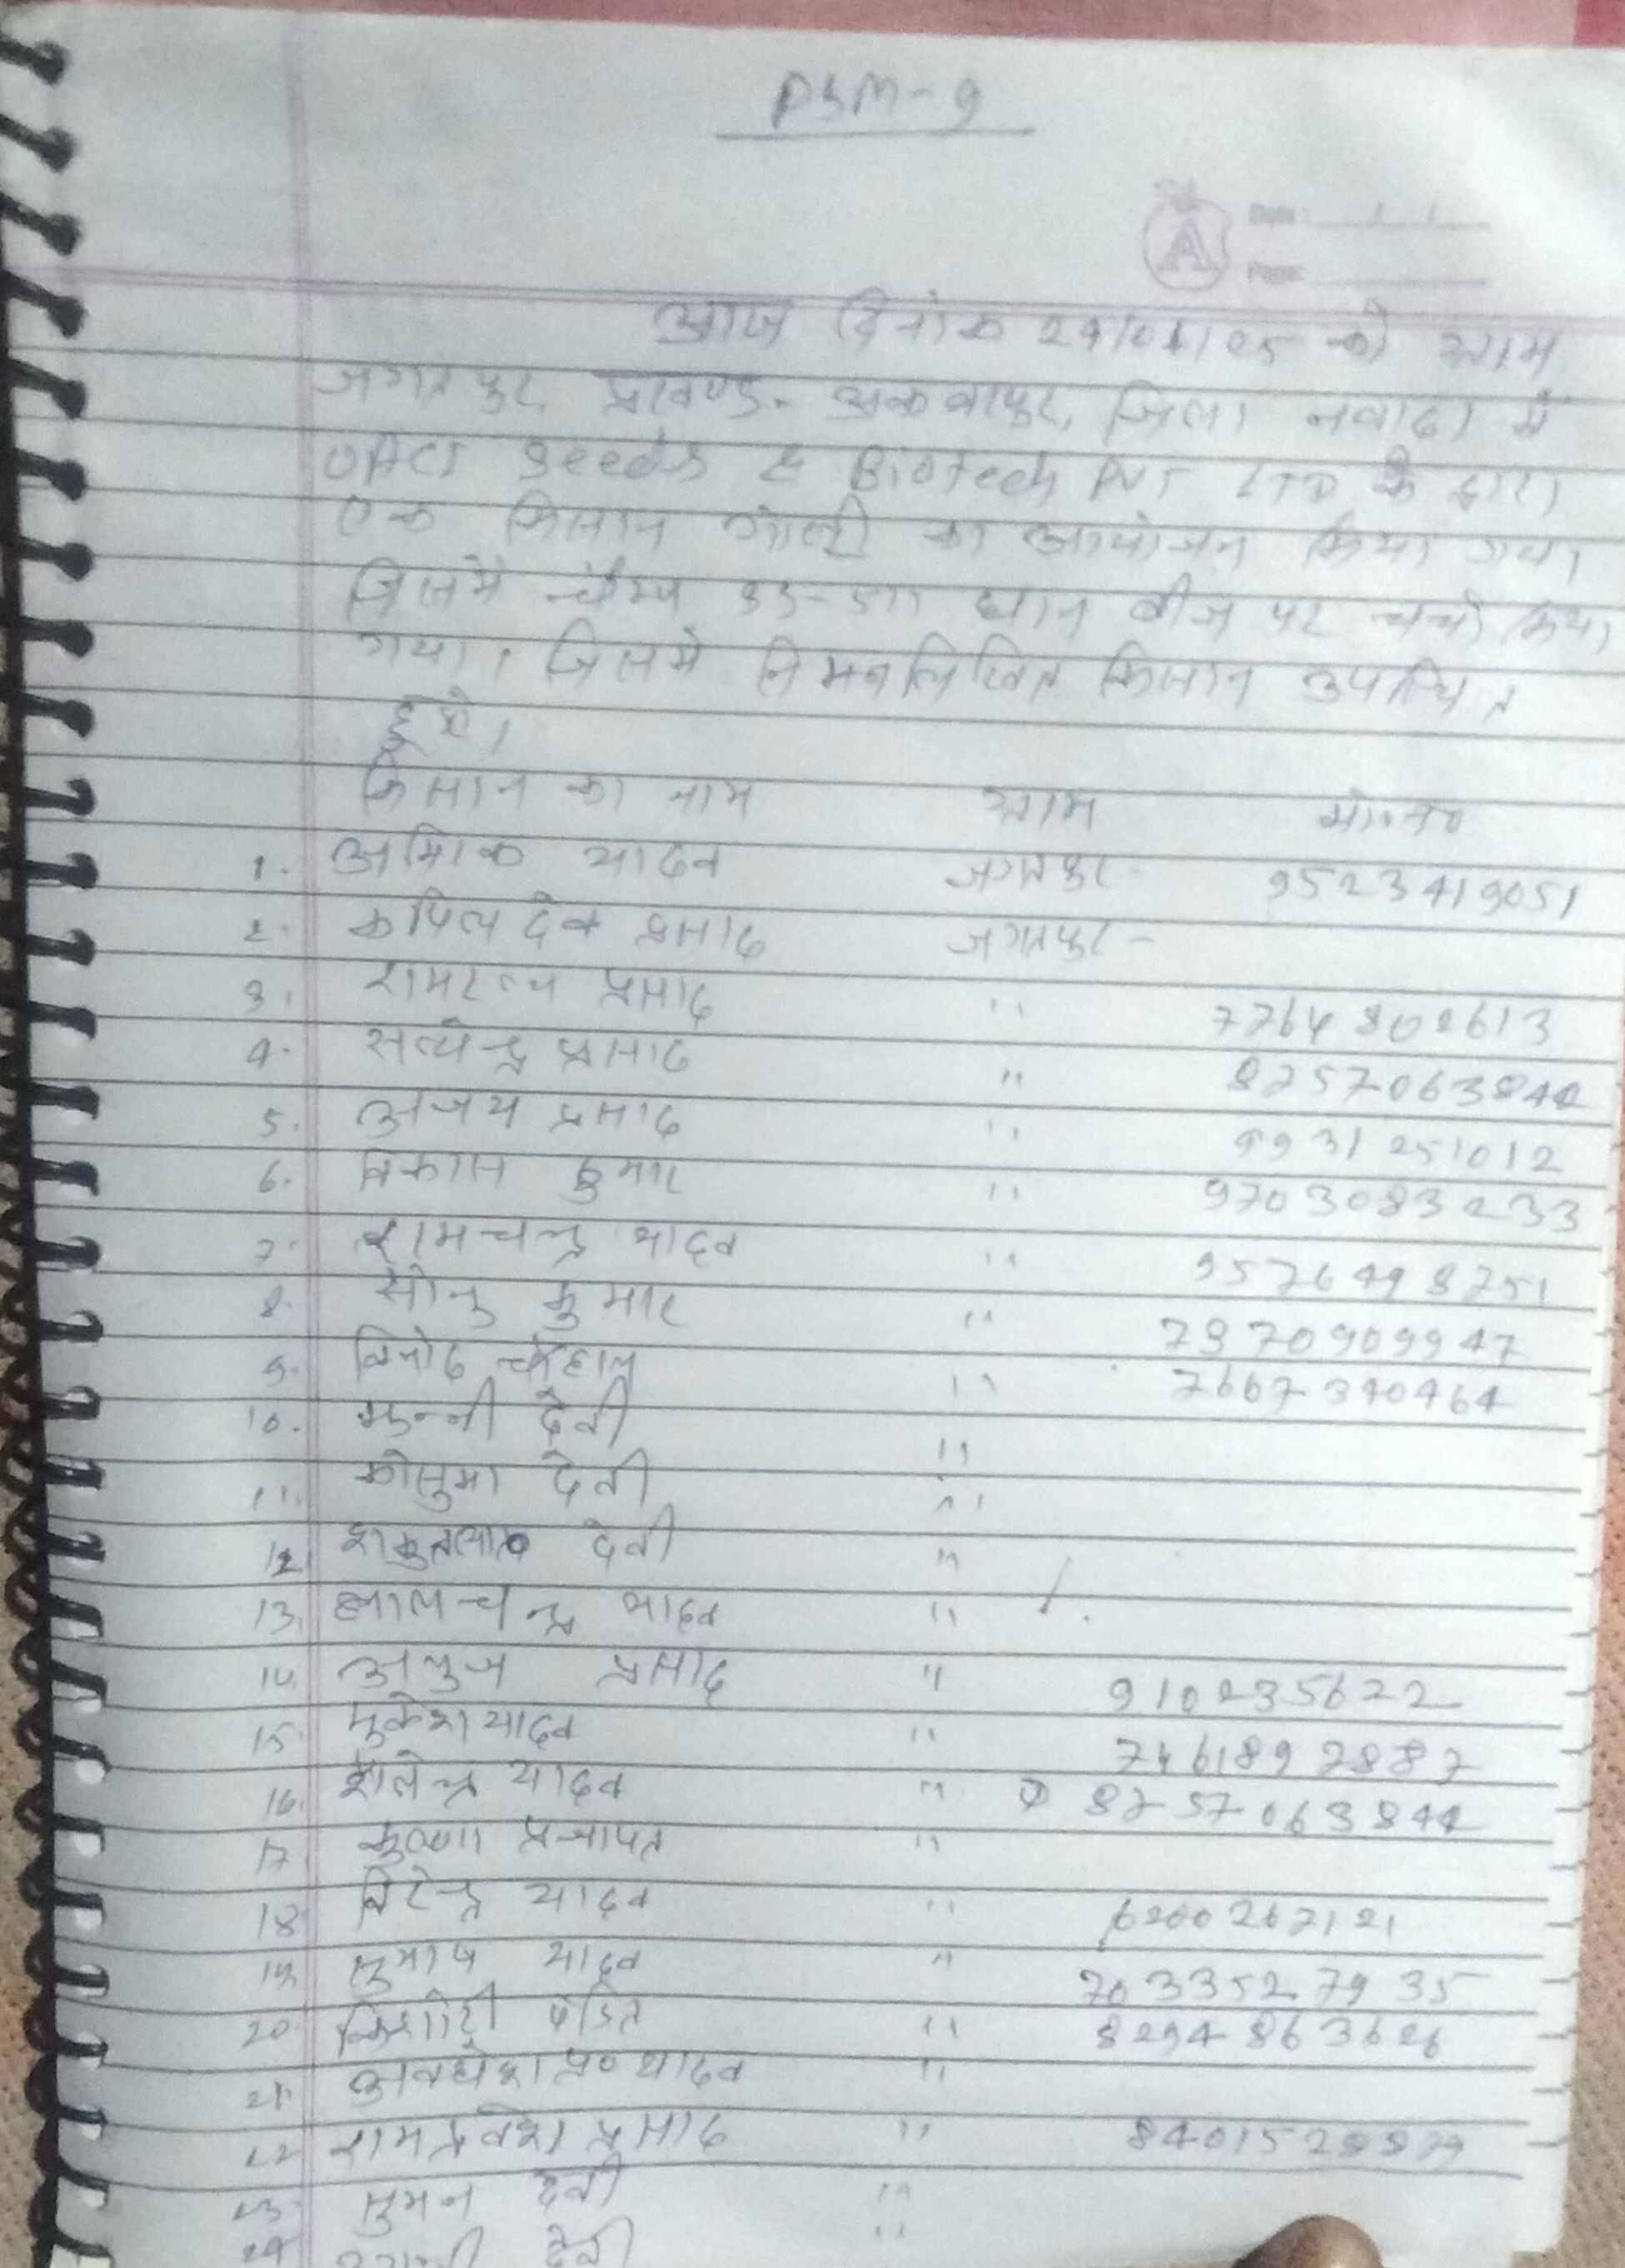 PSM-9
Date :
Page:
आज दिनांक 24/04/25 को ग्राम
जगतपुर, प्रखण्ड- अकबरपुर, जिला नवादा में
Seeds & Biotech PVT LTD के द्वारा
एक किसान गोष्ठी का आयोजन किया गया
जिसमें धान बीज पर चर्चा किया
गया। जिसमें निमनलिखित किसान उपस्थित
हुये।
किसान का नाम ग्राम मो॰न०
1. यादव जगतपुर- 9523419051
2. कपिल देव प्रसाद जगतपुर-
3. प्रसाद " 7764802613
4. सत्येन्द्र प्रसाद " 8757063844
5. अजय प्रसाद " 9931251012
6. विकास कुमार " 9703083233
7. रामचन्द्र यादव " 9576498751
8. सोनु कुमार " 7970909947
9. विनोद चौहान " 7667340464
10. मुन्नी देवी "
11. कोसुमा देवी "
12. देवी "
13. लालचन्द्र यादव "
14. अनुज प्रसाद " 910235622
15. मुकेश यादव " 7461897887
16. शैलेन्द्र यादव " 8757063844
17. कृष्णा प्रजापत "
18. विरेन्द्र यादव " 6200267121
19. सुभाष यादव " 7033527935
20. किशोरी पंडित " 8294863626
21. अवधेश प्र० यादव "
22. रामप्रवेश प्रसाद "
23. सुमन देवी "
24. देवी "